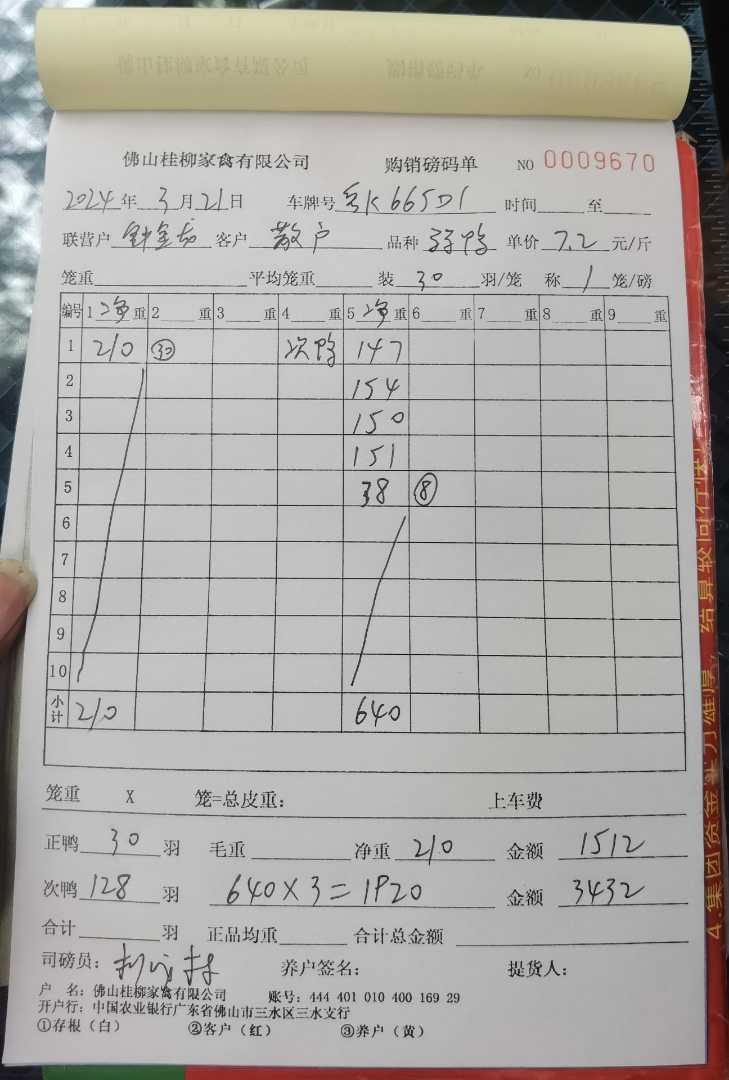 佛山桂柳家禽有限公司 购销磅码单 NO 0009670
2024年 3月21日 车牌号 粤K665D1 时间 至
联营户 客户 散户 品种 单价 7.2 元/斤
笼重 平均笼重 装 30 羽/笼 称 1 笼/磅
编号 1 净 重 2 重 3 重 4 重 5 净 重 6 重 7 重 8 重 9 重
1 210 30 次鸭 147
2 154
3 150
4 151
5 38 8
6
7
8
9
10
小计 210 640
笼重 X 笼=总皮重: 上车费
正鸭 30 羽 毛重 净重 210 金额 1512
次鸭 128 羽 640×3=1920 金额 3432
合计 羽 正品均重 合计总金额
司磅员: 养户签名: 提货人:
户 名: 佛山桂柳家禽有限公司 账号: 444 401 010 400 169 29
开户行: 中国农业银行广东省佛山市三水区三水支行
①存根（白） ②客户（红） ③养户（黄）